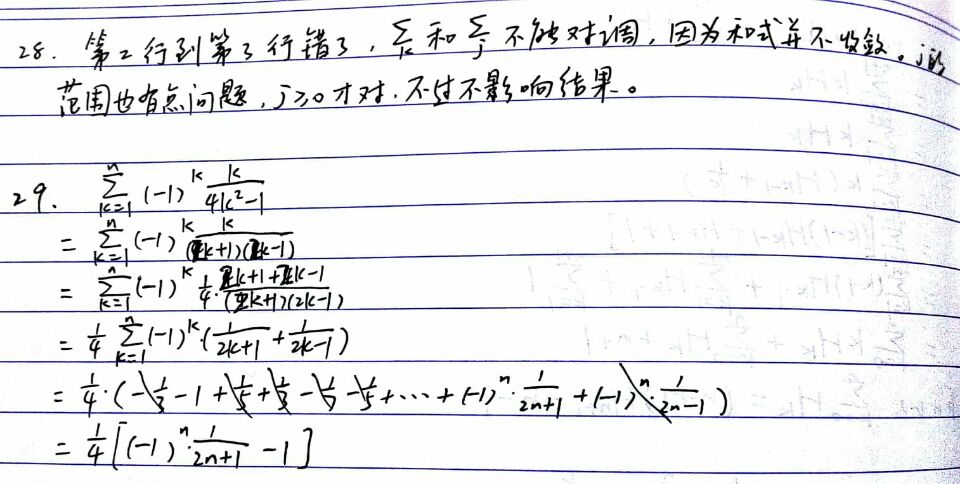 28. 第2行到第3行错了,∑k 和 ∑j 不能对调,因为和式并不收敛。j的
范围也有点问题,j≥0才对,不过不影响结果。
29. ∑_{k=1}^{n} (-1)^k k/(4k²-1)
= ∑_{k=1}^{n} (-1)^k k/((2k+1)(2k-1))
= ∑_{k=1}^{n} (-1)^k 1/4 · (2k+1+2k-1)/((2k+1)(2k-1))
= 1/4 ∑_{k=1}^{n} (-1)^k · (1/(2k+1) + 1/(2k-1))
= 1/4 · (-1/3 - 1 + 1/5 + 1/3 - 1/7 - 1/5 + ··· + (-1)^n · 1/(2n+1) + (-1)^n · 1/(2n-1))
= 1/4 [(-1)^n · 1/(2n+1) - 1]